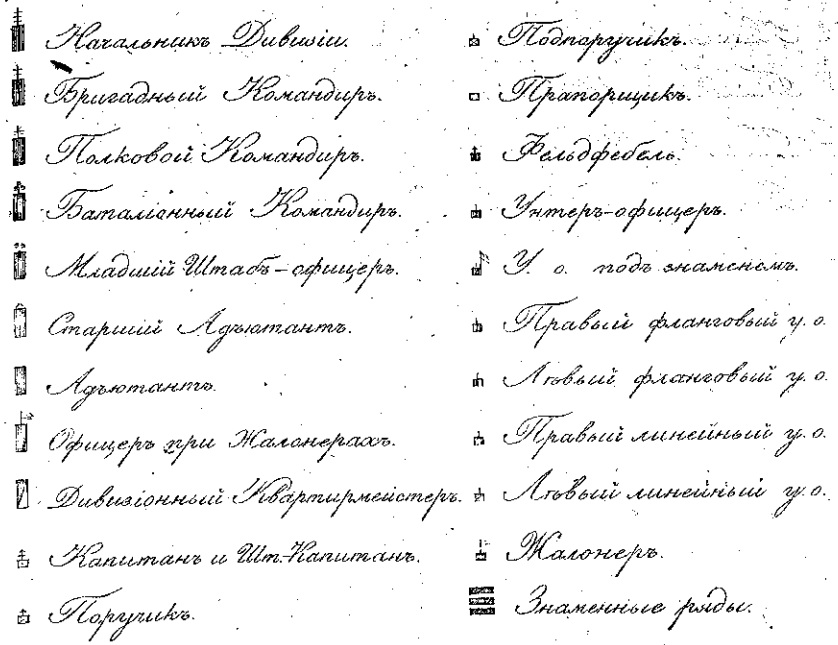 Начальникъ Дивизіи.
Бригадный Командиръ.
Полковой Командиръ.
Баталіонный Командиръ.
Младшій Штабъ-офицеръ.
Старшій Адъютантъ.
Адъютантъ.
Офицеръ при Жалонерахъ.
Дивизіонный Квартирмейстеръ.
Капитанъ и Шт.-Капитанъ.
Поручикъ.
Подпоручикъ.
Прапорщикъ.
Фельдфебель.
Унтеръ-офицеръ.
У. о. подъ знаменемъ.
Правый фланговый у. о.
Лѣвый фланговый у. о.
Правый линейный у. о.
Лѣвый линейный у. о.
Жалонеръ.
Знаменные ряды.